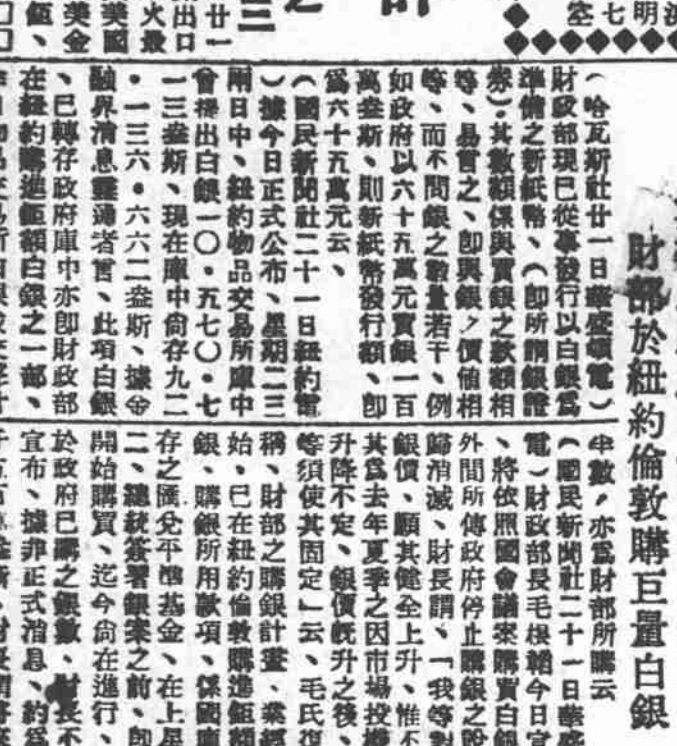 財部於紐約倫敦購巨量白銀
（哈瓦斯社廿一日華盛頓電）
財政部現已從事發行以白銀爲
準備之新紙幣、（卽所謂銀證
券）。其數額係與買銀之款額相
等、易言之、卽與銀之價值相
等、而不問銀之數量若干、例
如政府以六十五萬元買銀一百
萬盎斯、則新紙幣發行額、卽
爲六十五萬元云、
（國民新聞社二十一日紐約電
）據今日正式公布、星期二三
兩日中、紐約物品交易所庫中
曾提出白銀一〇•五七〇•七
一三盎斯、現在庫中尙存九二
•一三六•六六二盎斯、據金
融界消息靈通者言、此項白銀
、已轉存政府庫中亦卽財政部
在紐約購進鉅額白銀之一部、
半數，亦爲財部所購云
（國民新聞社二十一日華盛
電）財政部長毛根韜今日宣
、將依照國會議案購買白銀
外間所傳政府停止購銀之說
歸消滅、財長謂、「我等對
銀價、願其健全上升、惟不
其爲去年夏季之因市場投機
升降不定、銀價旣升之後、
等須使其固定」云、毛氏復
稱、財部之購銀計畫、業經
始、已在紐約倫敦購進鉅額
銀、購銀所用款項、係國庫
存之匯兌平準基金、在上星
二、總統簽署銀案之前、卽
開始購買、迄今尙在進行、
於政府已購之銀數、財長不
宣布、據非正式消息、約爲